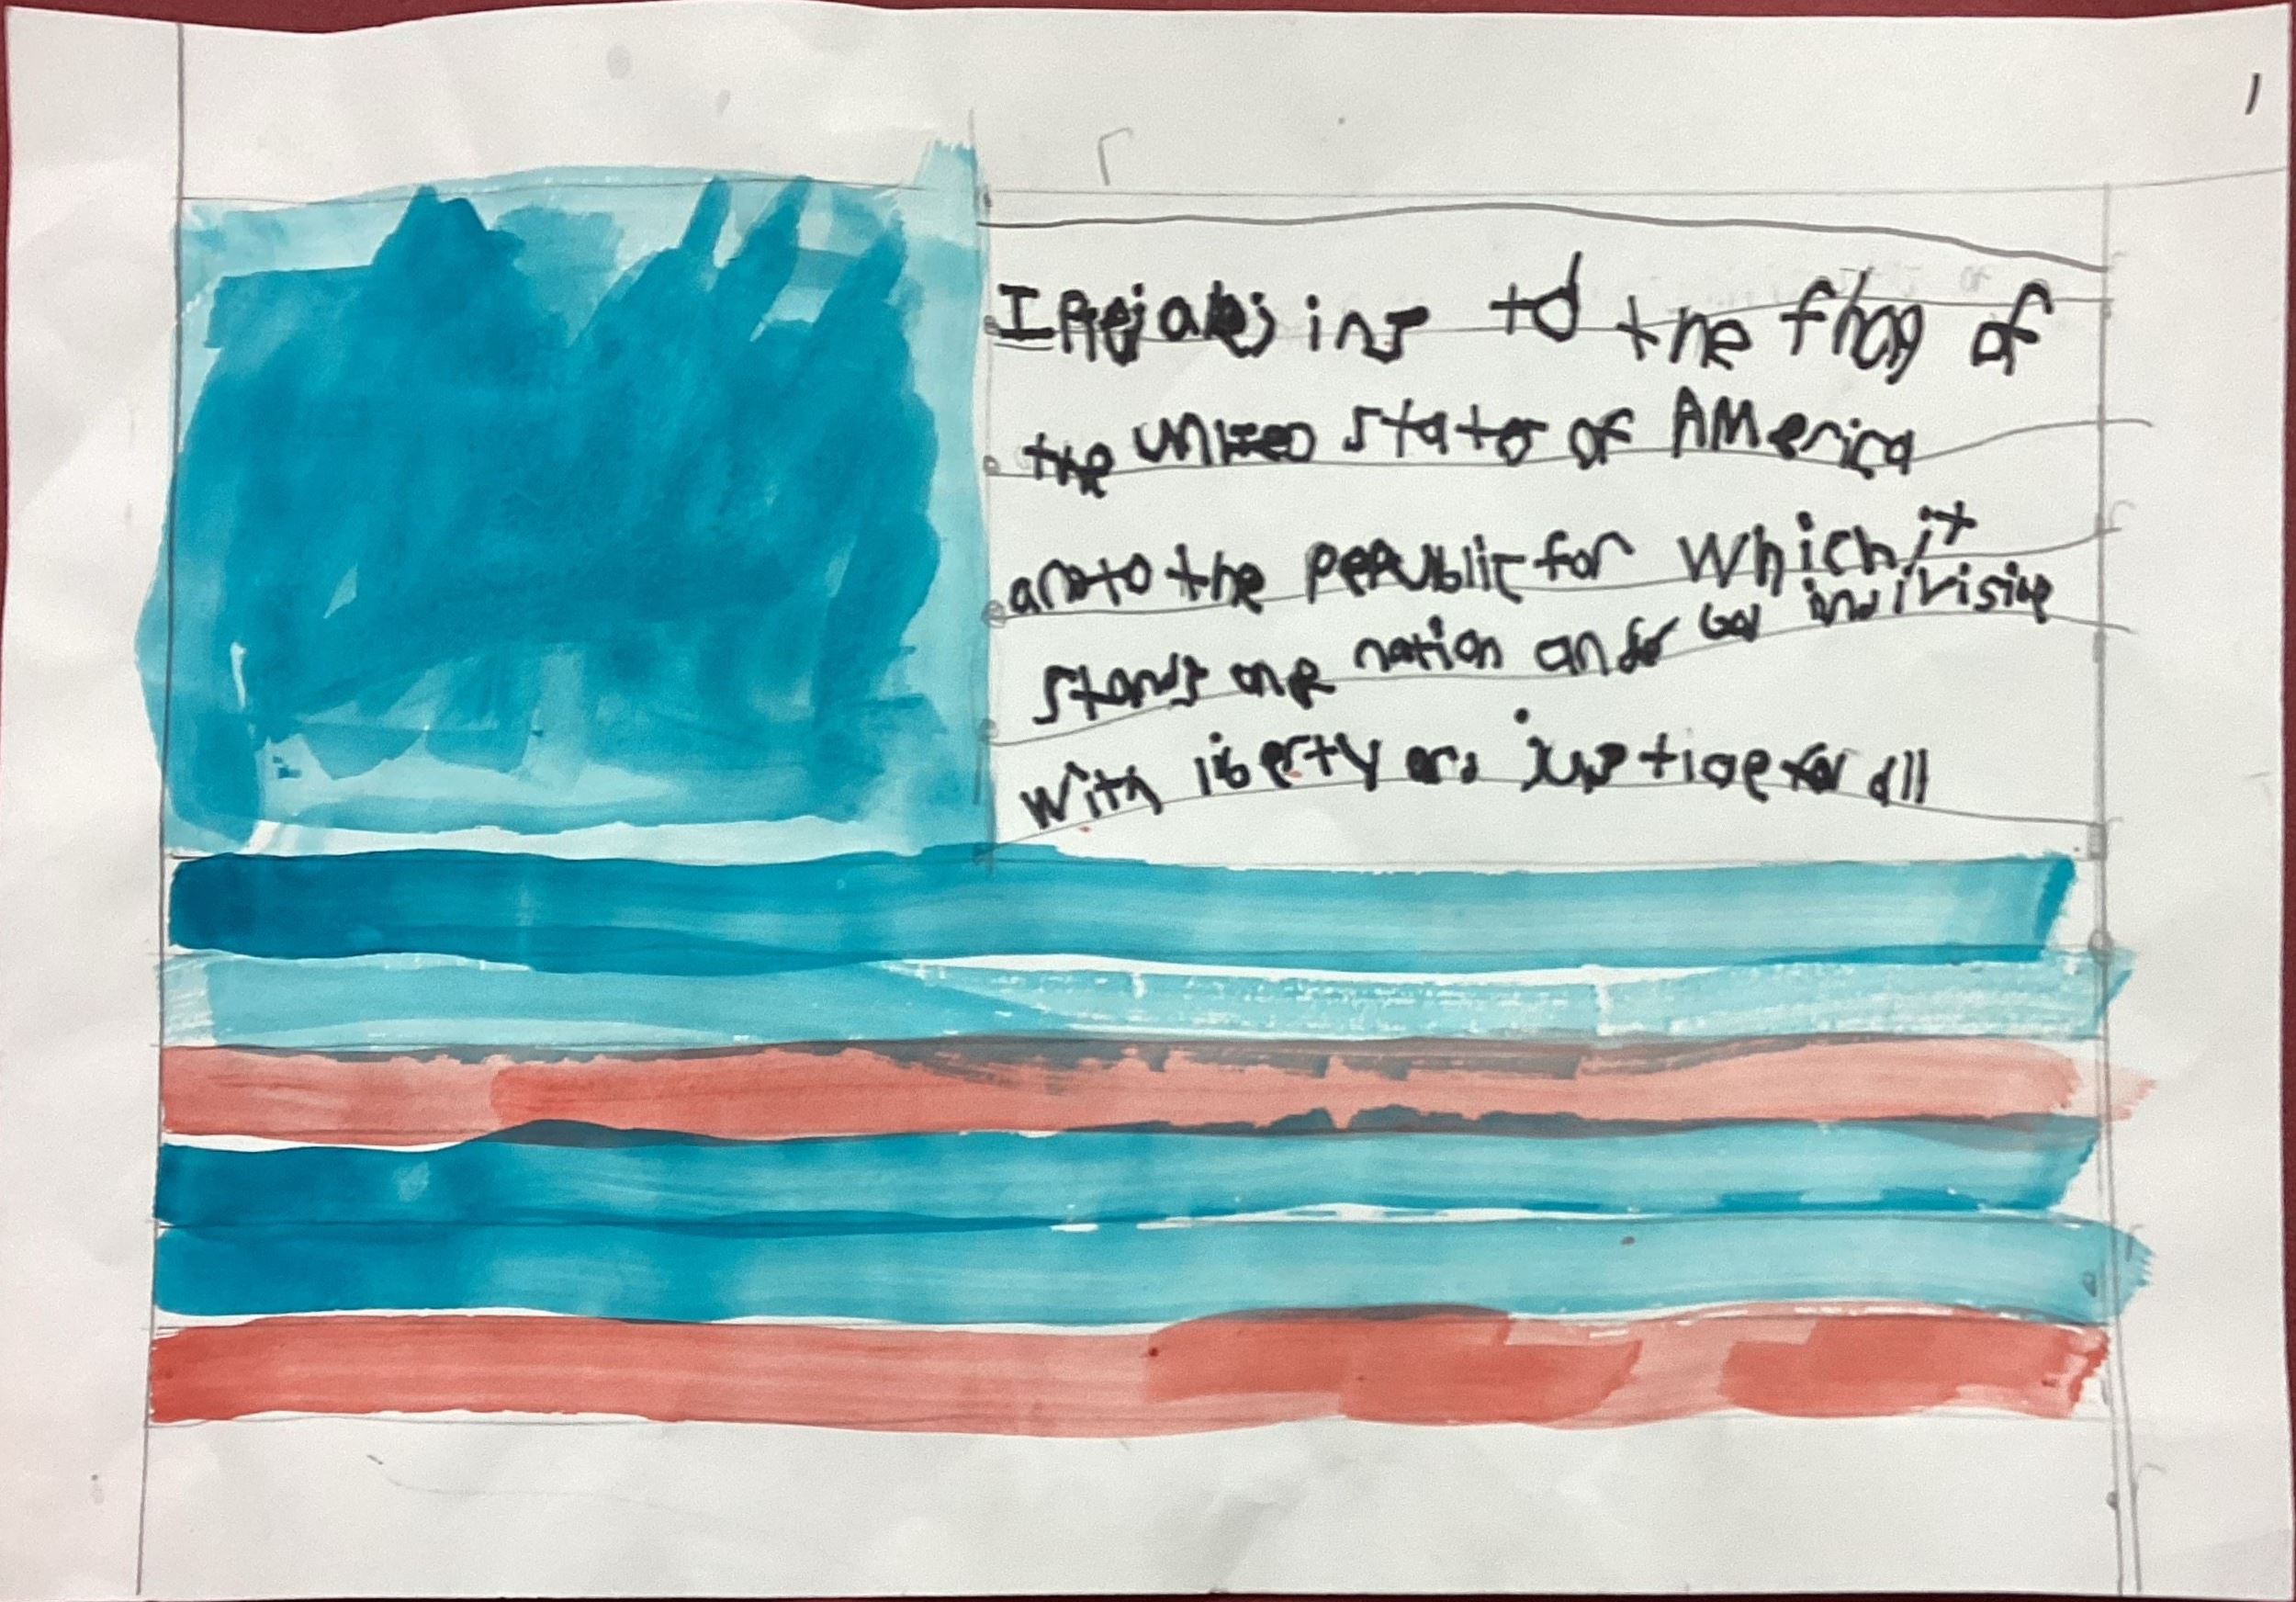 I to the flag of
the United states of AMerica
and to the republic for Which it
stands one nation under God indivisible
With liberty and justice for all